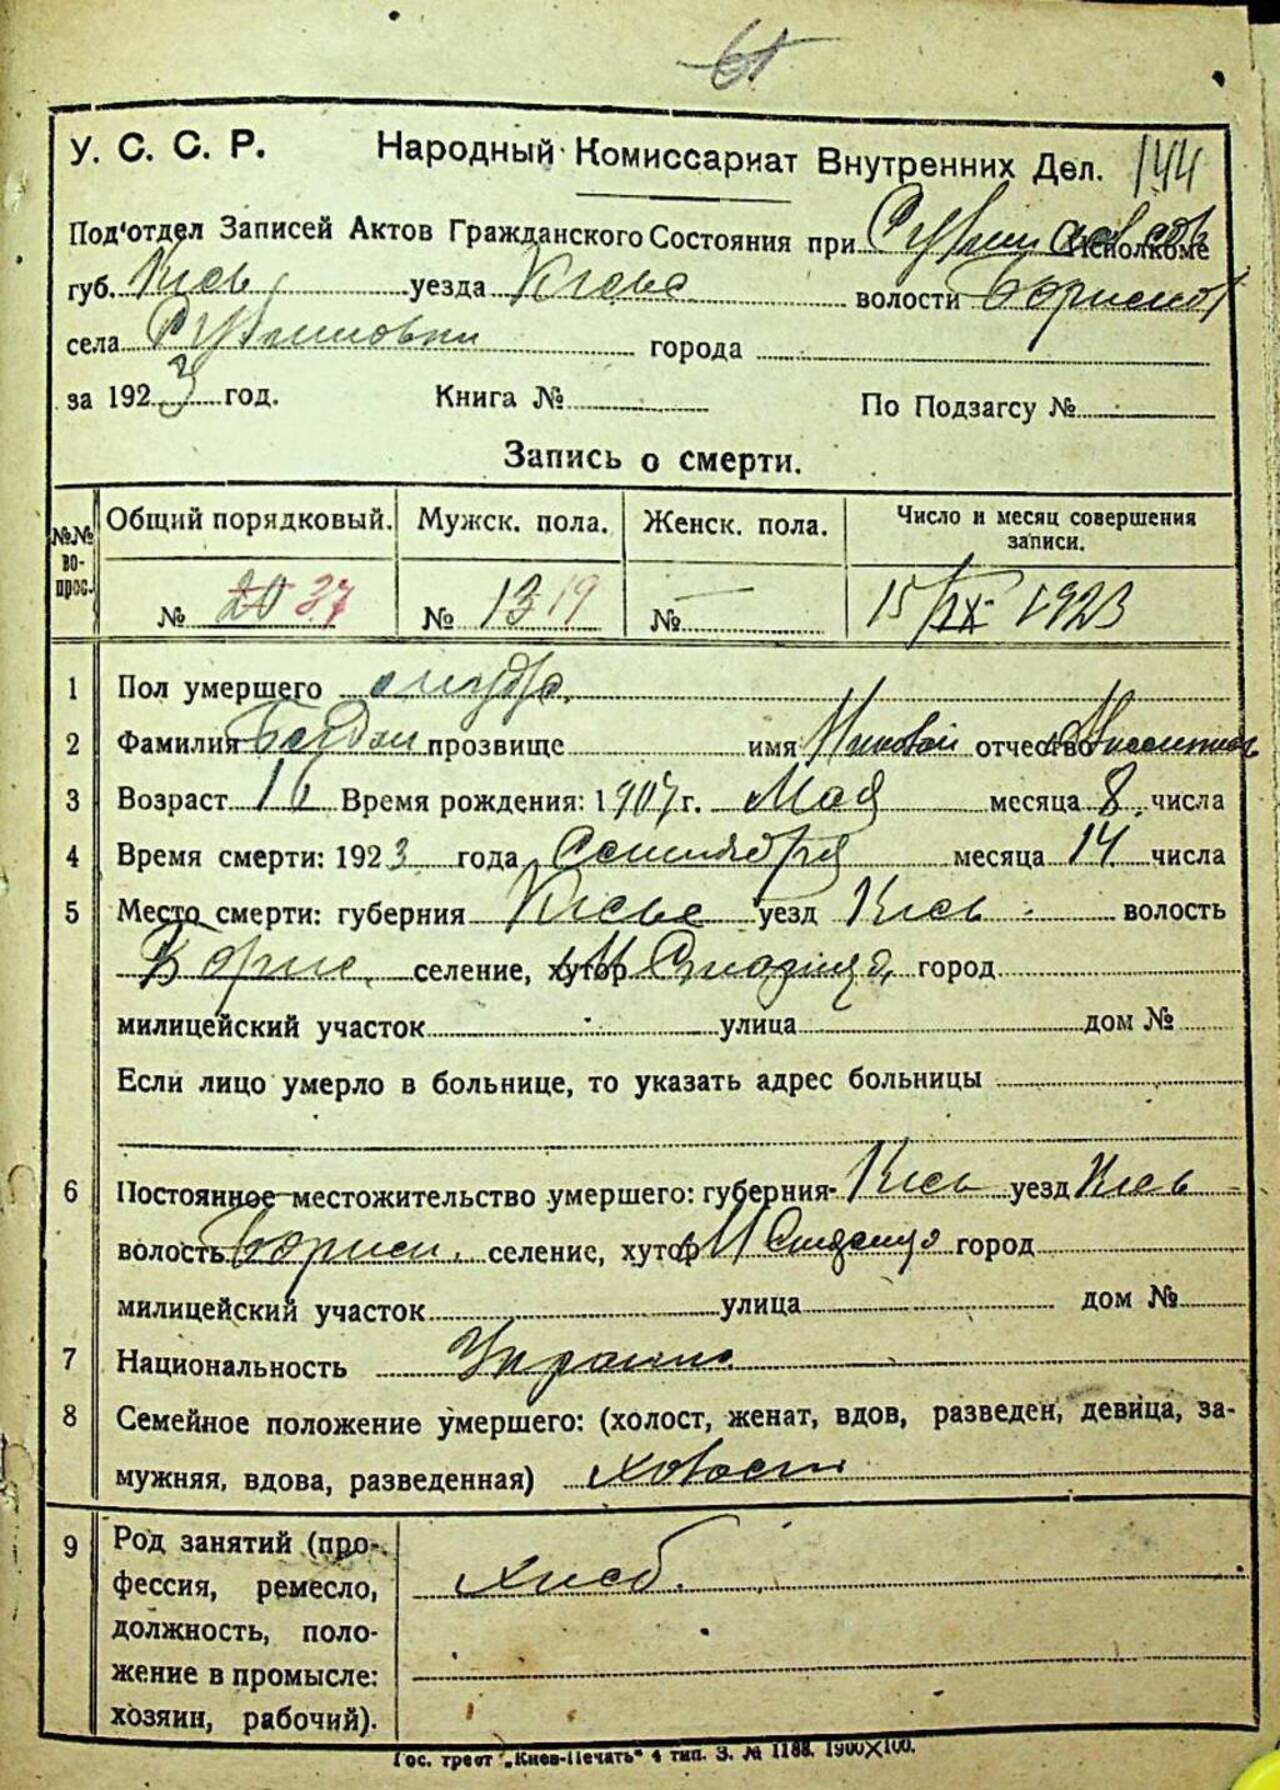 144
У. С. С. Р. Народный Комиссариат Внутренних Дел.
Под'отдел Записей Актов Гражданского Состояния при Исполкоме
губ. Киев уезда Киевс волости
села города
за 1923 год. Книга № По Подзагсу №
Запись о смерти.
№№ во-прос. Общий порядковый. Мужск. пола. Женск. пола. Число и месяц совершения записи.
№ 20 37 № 13 19 № — 15/IX 1923
1 Пол умершего
2 Фамилия прозвище имя отчество
3 Возраст 16 Время рождения: 1907 г. Мая месяца 8 числа
4 Время смерти: 1923 года Сентября месяца 14 числа
5 Место смерти: губерния Киевс уезд Киев волость
Борис. селение, хутор город
милицейский участок улица дом №
Если лицо умерло в больнице, то указать адрес больницы
6 Постоянное местожительство умершего: губерния Киев уезд Киев
волость Борисп. селение, хутор город
милицейский участок улица дом №
7 Национальность Украин.
8 Семейное положение умершего: (холост, женат, вдов, разведен, девица, за-
мужняя, вдова, разведенная) холост
9 Род занятий (про-
фессия, ремесло, хлеб.
должность, поло-
жение в промысле:
хозяин, рабочий).
Гос. трест „Киев-Печать“ 4 тип. З. № 1188. 1900×100.